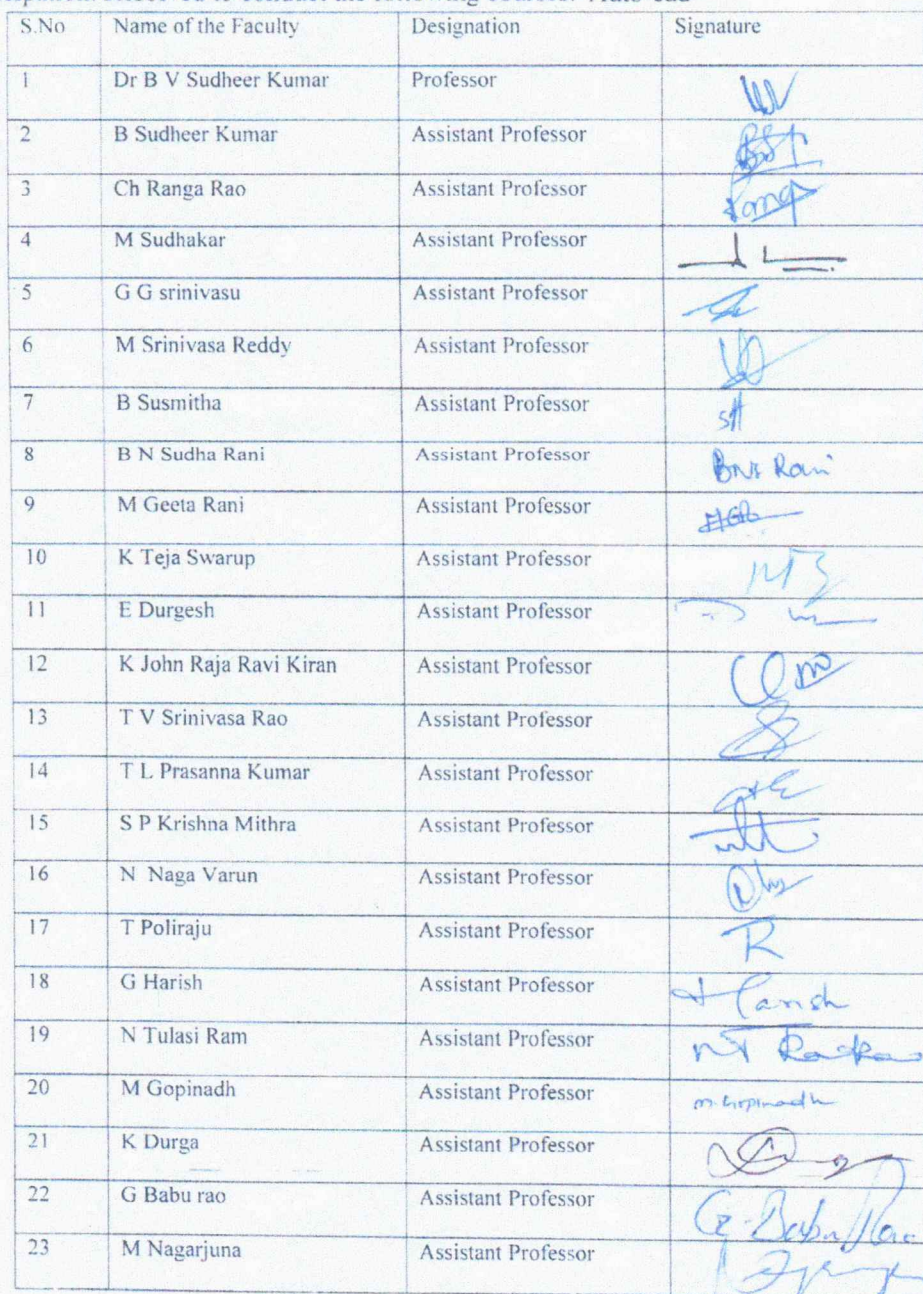 to conduct the following courses: Auto Cad
S.No Name of the Faculty Designation Signature
1 Dr B V Sudheer Kumar Professor
2 B Sudheer Kumar Assistant Professor
3 Ch Ranga Rao Assistant Professor
4 M Sudhakar Assistant Professor
5 G G srinivasu Assistant Professor
6 M Srinivasa Reddy Assistant Professor
7 B Susmitha Assistant Professor
8 B N Sudha Rani Assistant Professor BNS Rani
9 M Geeta Rani Assistant Professor
10 K Teja Swarup Assistant Professor
11 E Durgesh Assistant Professor
12 K John Raja Ravi Kiran Assistant Professor
13 T V Srinivasa Rao Assistant Professor
14 T L Prasanna Kumar Assistant Professor
15 S P Krishna Mithra Assistant Professor
16 N Naga Varun Assistant Professor
17 T Poliraju Assistant Professor
18 G Harish Assistant Professor Harish
19 N Tulasi Ram Assistant Professor
20 M Gopinadh Assistant Professor m. Gopinadh
21 K Durga Assistant Professor
22 G Babu rao Assistant Professor G. Babu Rao
23 M Nagarjuna Assistant Professor